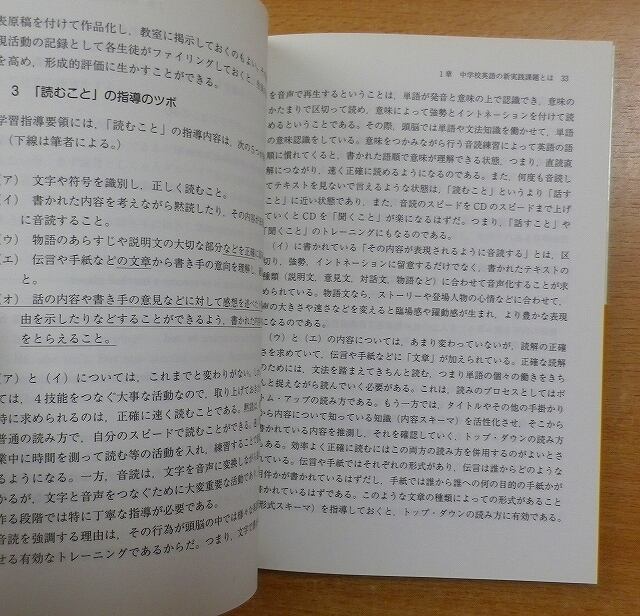 表原稿を付けて作品化し，教室に掲示しておくのもよい。
現活動の記録として各生徒がファイリングしておくと，
を高め，形成的評価に生かすことができる。
3 「読むこと」の指導のツボ
学習指導要領には，「読むこと」の指導内容は，次の5つ
（下線は筆者による。）
（ア） 文字や符号を識別し，正しく読むこと。
（イ） 書かれた内容を考えながら黙読したり，その内容
に音読すること。
（ウ） 物語のあらすじや説明文の大切な部分などを正確に
（エ） 伝言や手紙などの文章から書き手の意向を理解し，
と。
（オ） 話の内容や書き手の意見などに対して感想を述べた
由を示したりなどすることができるよう，書かれた内容
をとらえること。
（ア）と（イ）については，これまでと変わりがない。
ては，4技能をつなぐ大事な活動なので，取り上げてお
特に求められるのは，正確に速く読むことである。黙読
普通の読み方で，自分のスピードで読むことができる。
業中に時間を測って読む等の活動を入れ，練習すること
るようになる。一方，音読は，文字を音声に変換しなが
かるが，文字と音声をつなぐために大変重要な活動であ
作る段階では特に丁寧な指導が必要である。
音読を強調する理由は，その行為が頭脳の中では様々な
せる有効なトレーニングであるからだ。つまり，文字で
1章 中学校英語の新実践課題とは 33
を音声で再生するということは，単語が発音と意味の上で認識でき，意味の
かたまりで区切って読め，意味によって強勢とイントネーションを付けて読
めるということである。その際，頭脳では単語や文法知識を働かせて，単語
の意味認識をしている。意味をつかみながら行う音読練習によって英語の語
順に慣れてくると，書かれた語順で意味が理解できる状態，つまり，直読直
解につながり，速く正確に読めるようになるのである。また，何度も音読し
てテキストを見ないで言えるような状態は，「読むこと」というより「話す
こと」に近い状態であり，また，音読のスピードをCDのスピードまで上げ
ていくとCDを「聞くこと」が楽になるはずだ。つまり，「話すこと」や
「聞くこと」のトレーニングにもなるのである。
（イ）に書かれている「その内容が表現されるように音読する」とは，区
切り，強勢，イントネーションに留意するだけでなく，書かれたテキストの
種類（説明文，意見文，対話文，物語など）に合わせて音声化することが求
められている。物語文なら，ストーリーや登場人物の心情などに合わせて，
声の大きさや速さなどを変えると臨場感や躍動感が生まれ，より豊かな表現
になるのである。
（ウ）と（エ）の内容については，あまり変わっていないが，読解の正確
さを求めていて，伝言や手紙などに「文章」が加えられている。正確な読解
のためには，文法を踏まえてきちんと読む，つまり単語の個々の働きをきち
んと捉えながら読んでいく必要がある。これは，読みのプロセスとしてはボ
トム・アップの読み方である。もう一方では，タイトルやその他の手掛かり
から内容について知っている知識（内容スキーマ）を活性化させ，そこから
書かれている内容を推測し，それを確認していく，トップ・ダウンの読み方
がある。効率よく正確に読むにはこの両方の読み方を併用するのがよいとさ
れている。伝言や手紙ではそれぞれの形式があり，伝言は誰からどのような
用件かが書かれているはずだし，手紙では誰から誰への何の目的の手紙かが
書かれているはずである。このような文章の種類によっての形式があること
（形式スキーマ）を指導しておくと，トップ・ダウンの読み方に有効である。